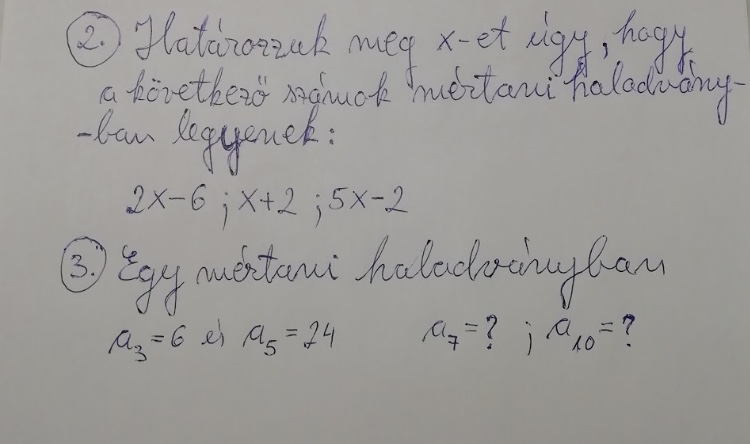 2. Határozzuk meg x-et úgy, hogy
a következő számok mértani haladvány-
-ban legyenek:
2x-6 ; x+2 ; 5x-2
3. Egy mértani haladványban
a₃=6 és a₅=24 a₇=? ; a₁₀=?